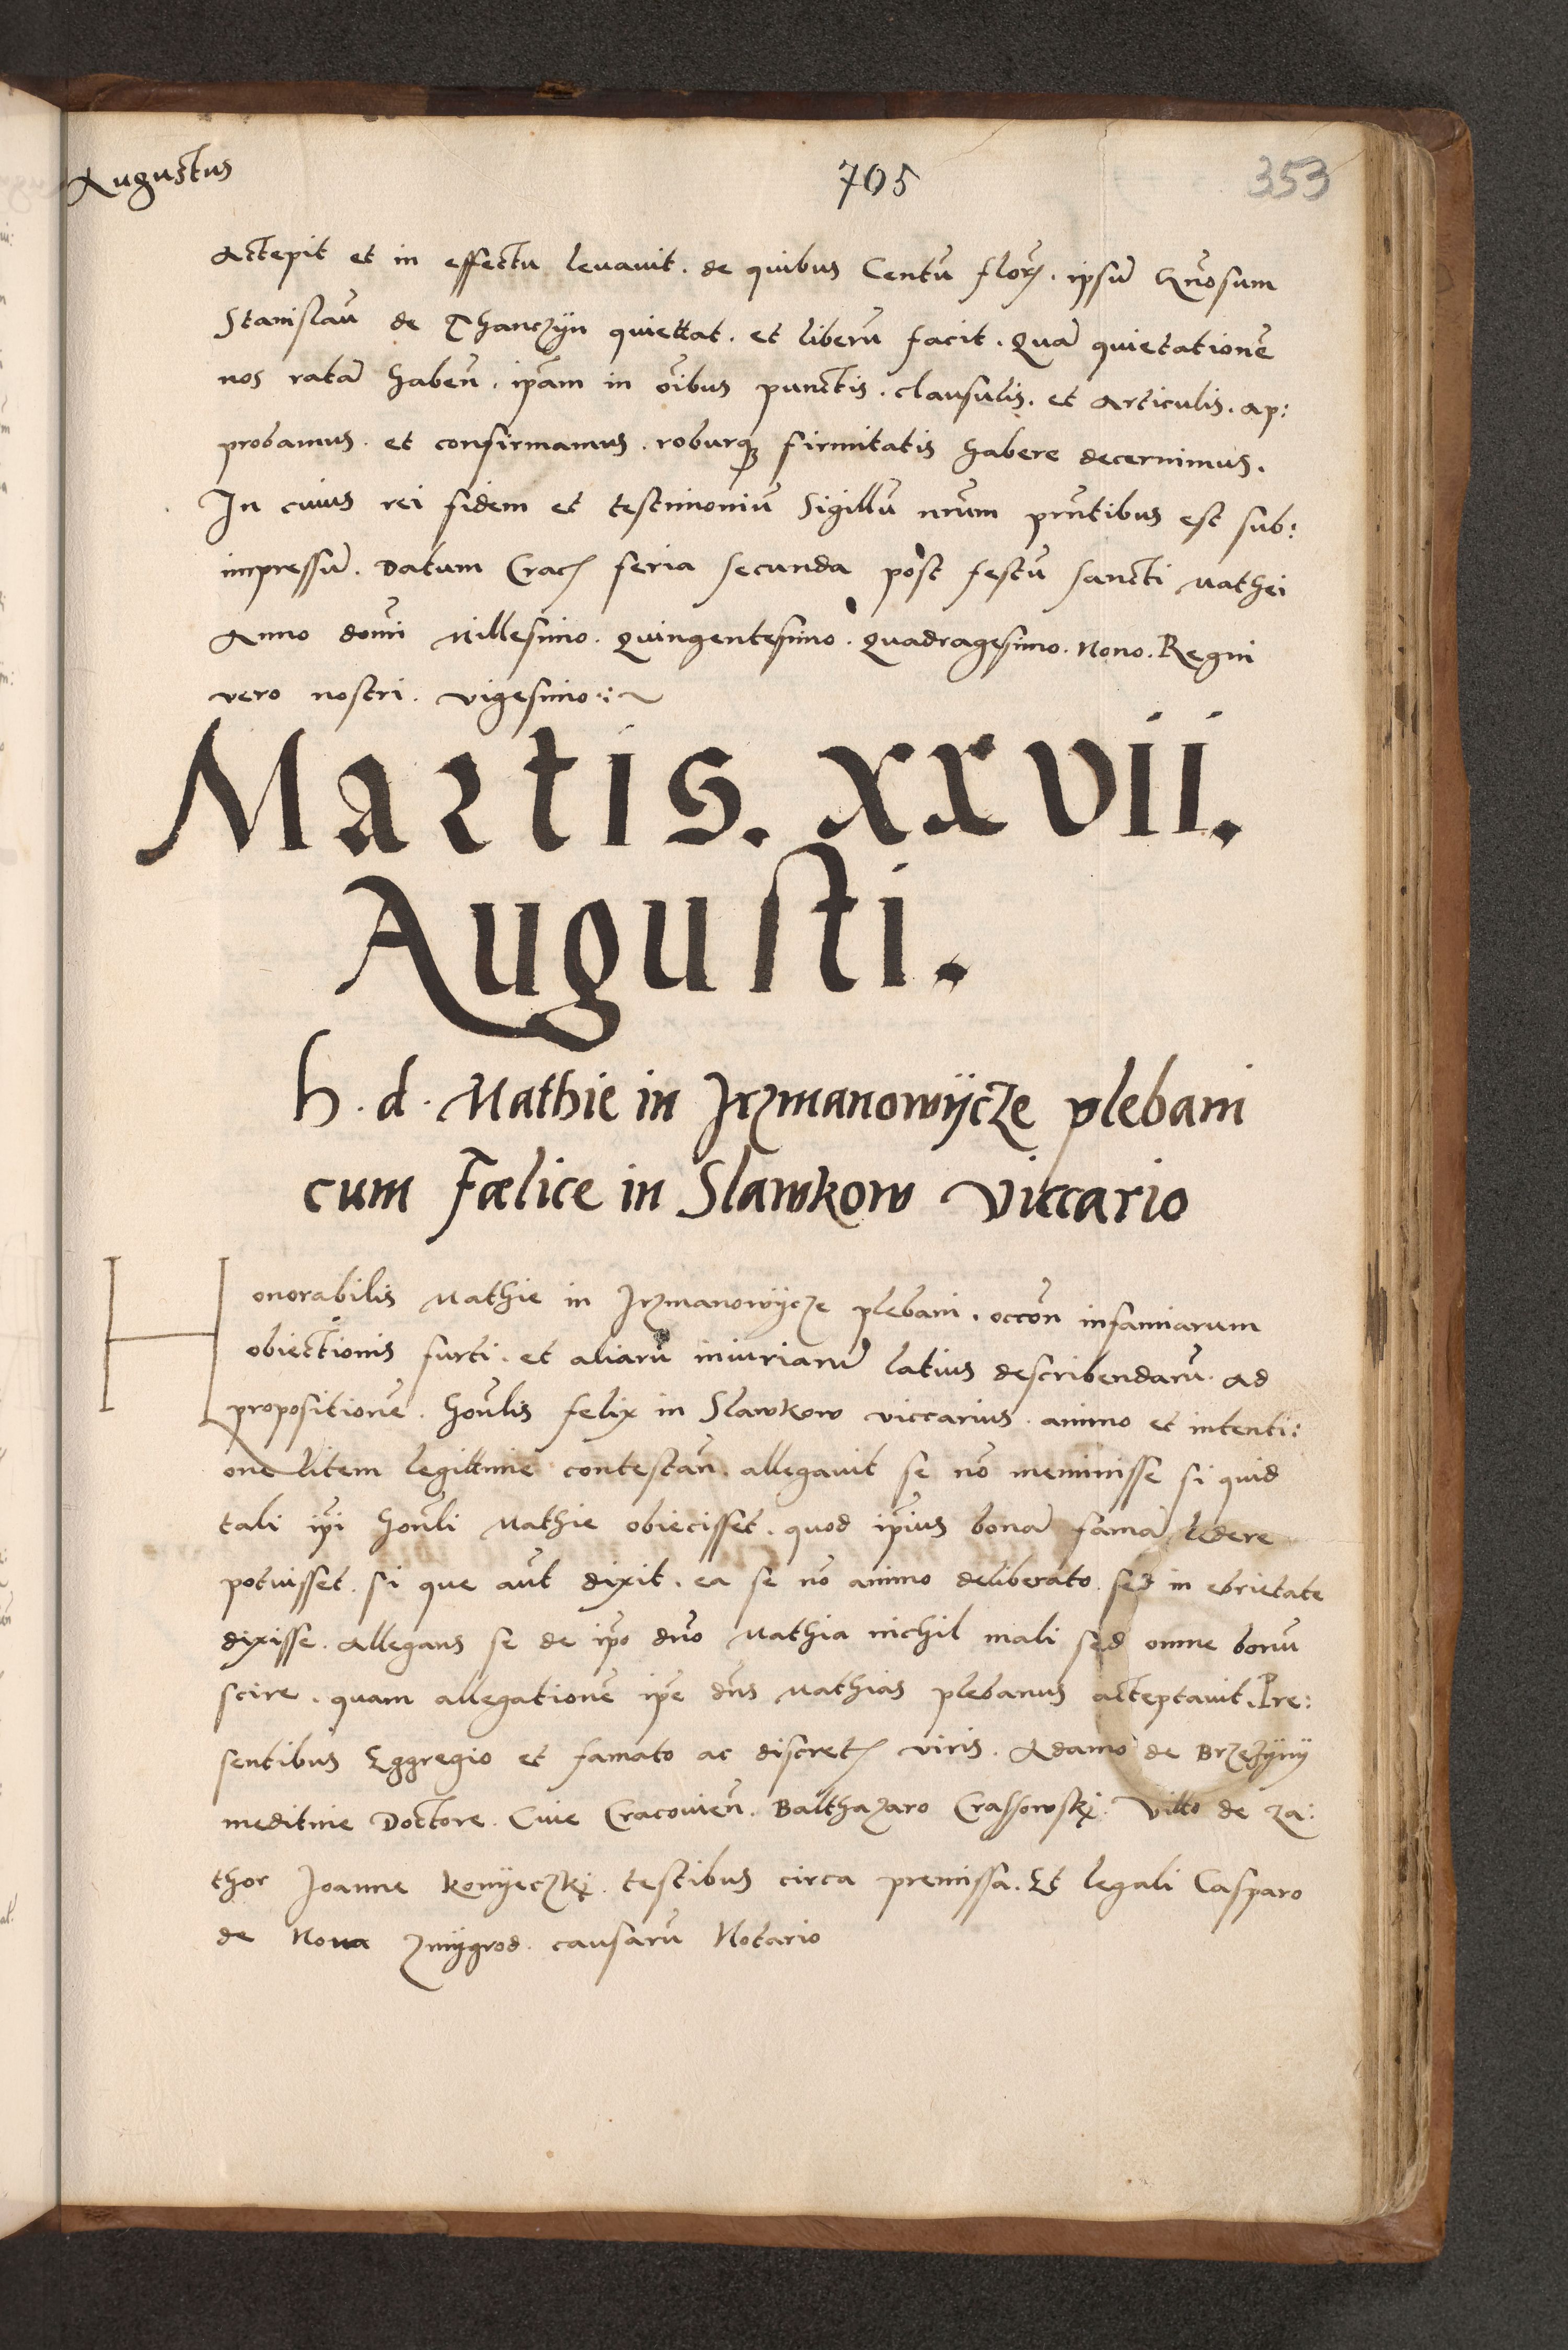 Augustus
705
353
Accepit et in effectu levavit. de quibus Centũ florꝭ. ipsũ Gñosum
Stanislaũ de Thanczÿn quiettat. et liberũ facit. Quã quietationẽ
nos ratã habeñ. ip̃am in õibus punctis. clausulis. et Articulis. ap:
probamus. et confirmamus. roburqꝫ firmitatis habere decernimus.
In cuius rei fidem et testimoniũ Sigillũ nr̃um pñtibus est sub:
impressũ. Datum Cracꝭ feria secunda post festũ sancti Mathei
Anno domĩ Millesimo. Quingentesimo. Quadragesimo. Nono. Regni
vero nostri. vigesimo:~
Martis. xxvii.
Augusti.
h. d. Mathie in Irzmanowÿcze plebani
cum Fœlice in Slawkow Viccario
Honorabilis Mathie in Irzmanowÿcze plebani. occõn infamiarum
obiectionis furti. et aliarũ iniuriarũ latius describendarũ. ad
propositionẽ. hoñlis felix in Slawkow viccarius. animo et intenti:
one litem legittime contestañ. allegavit se nõ meminisse si quid
tali ip̃i hoñli Mathie obiecisset. quod ip̃ius bonã famã ledere
potuisset. si que aũt dixit. ea se nõ animo deliberato. sed in ebrietate
dixisse. Allegans se de ip̃o dño Mathia nichil mali sed omne bonũ
scire. quam allegationẽ ip̃e dñs Mathias plebanus acceptavit. Pre:
sentibus Eggregio et famato ac discretꝭ viris. Adamo de Brzezÿnÿ
medicine Doctore. Cive Cracovieñ. Balthazaro Crassowskį. Vitto de Za:
thor Joanne Konÿeczkį. testibus circa premissa. Et legali Casparo
de Nova Zmÿgrod. causarũ Notario